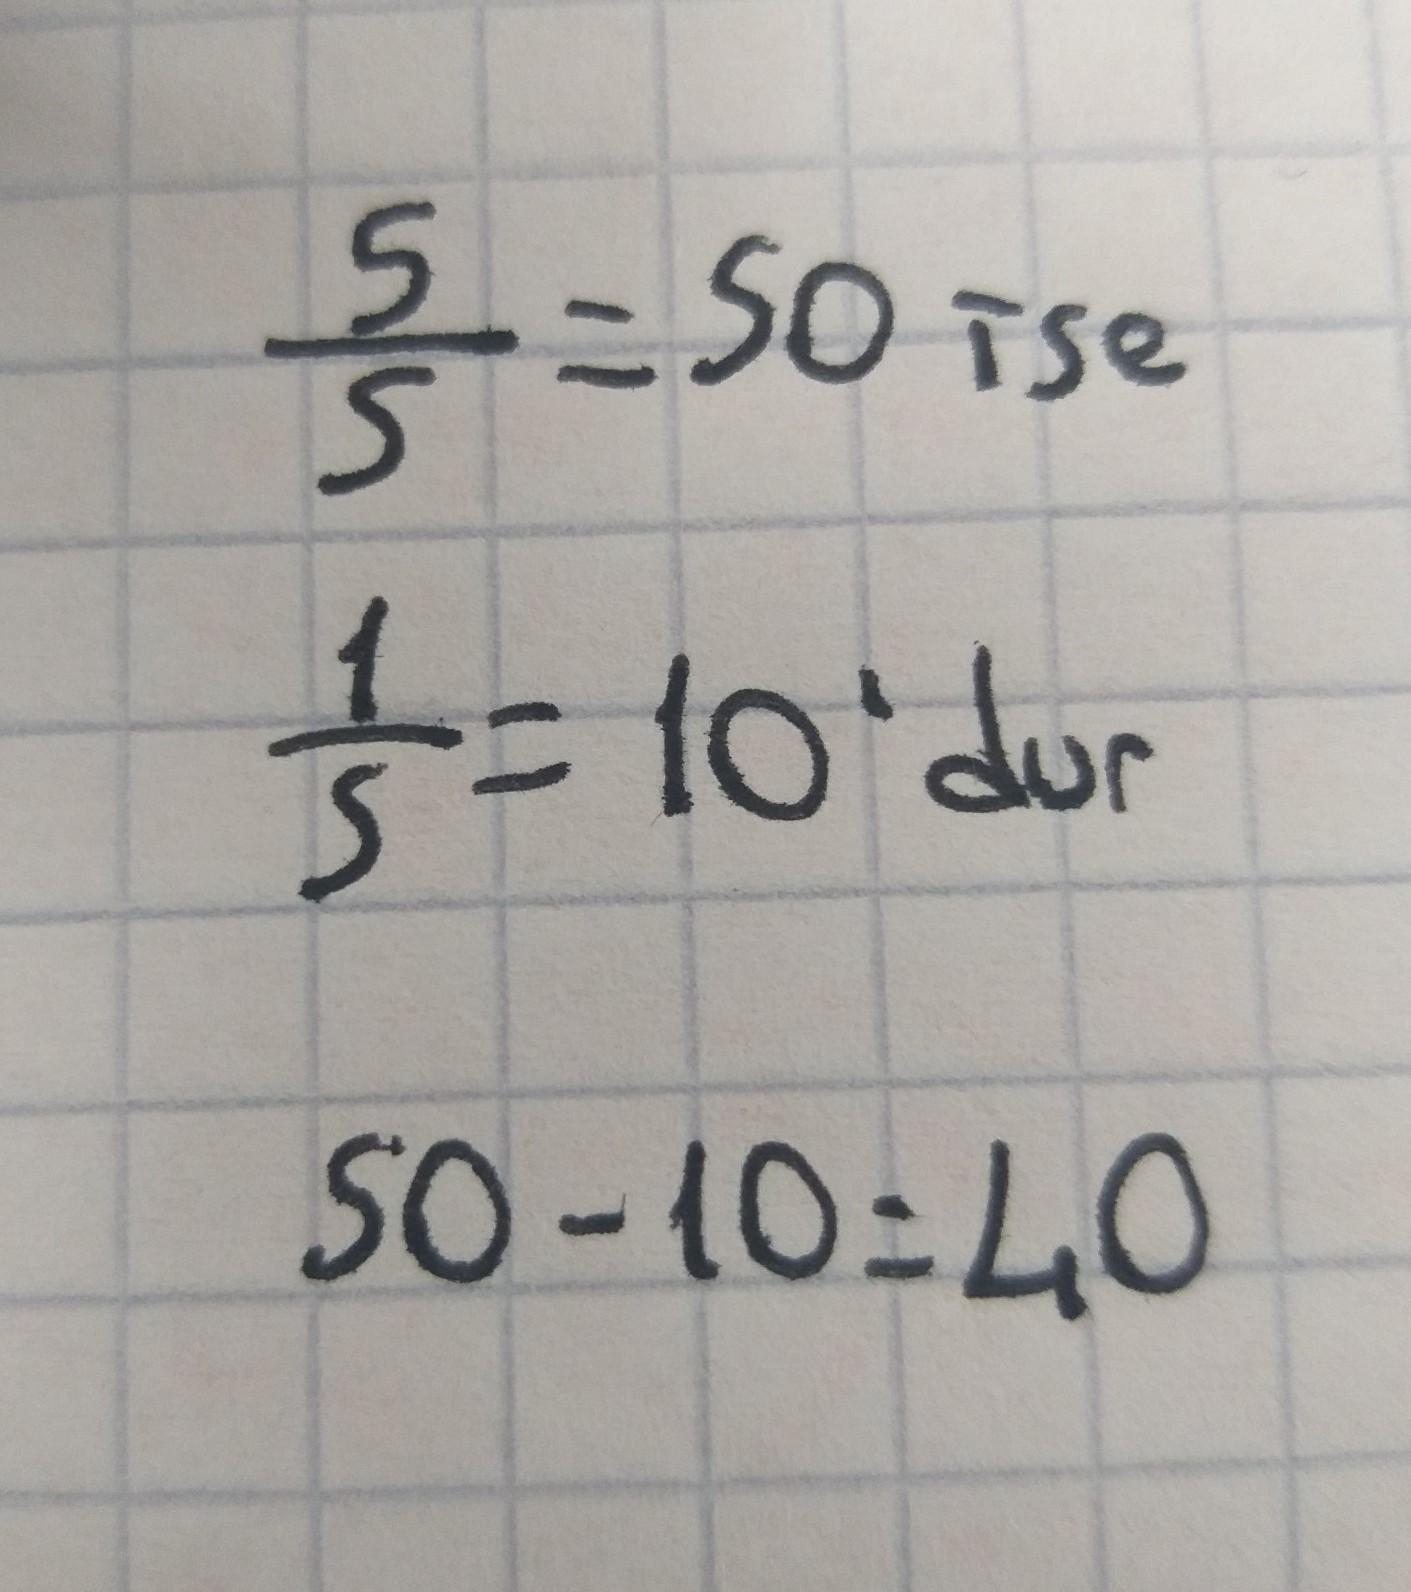 5/5 = 50 ise
1/5 = 10'dur
50 - 10 = 40